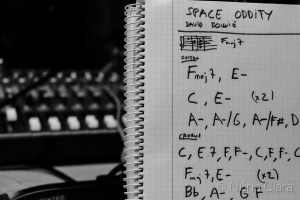 SPACE ODDITY
DAVID BOWIE
Fmaj7
INTRO
Fmaj7, E-
C, E- (x2)
A-, A-/G, A-/F#, D
CHORUS
C, E7, F, F-, C, F, F-, C
Fmaj7, E- (x2)
Bb, A-, G F